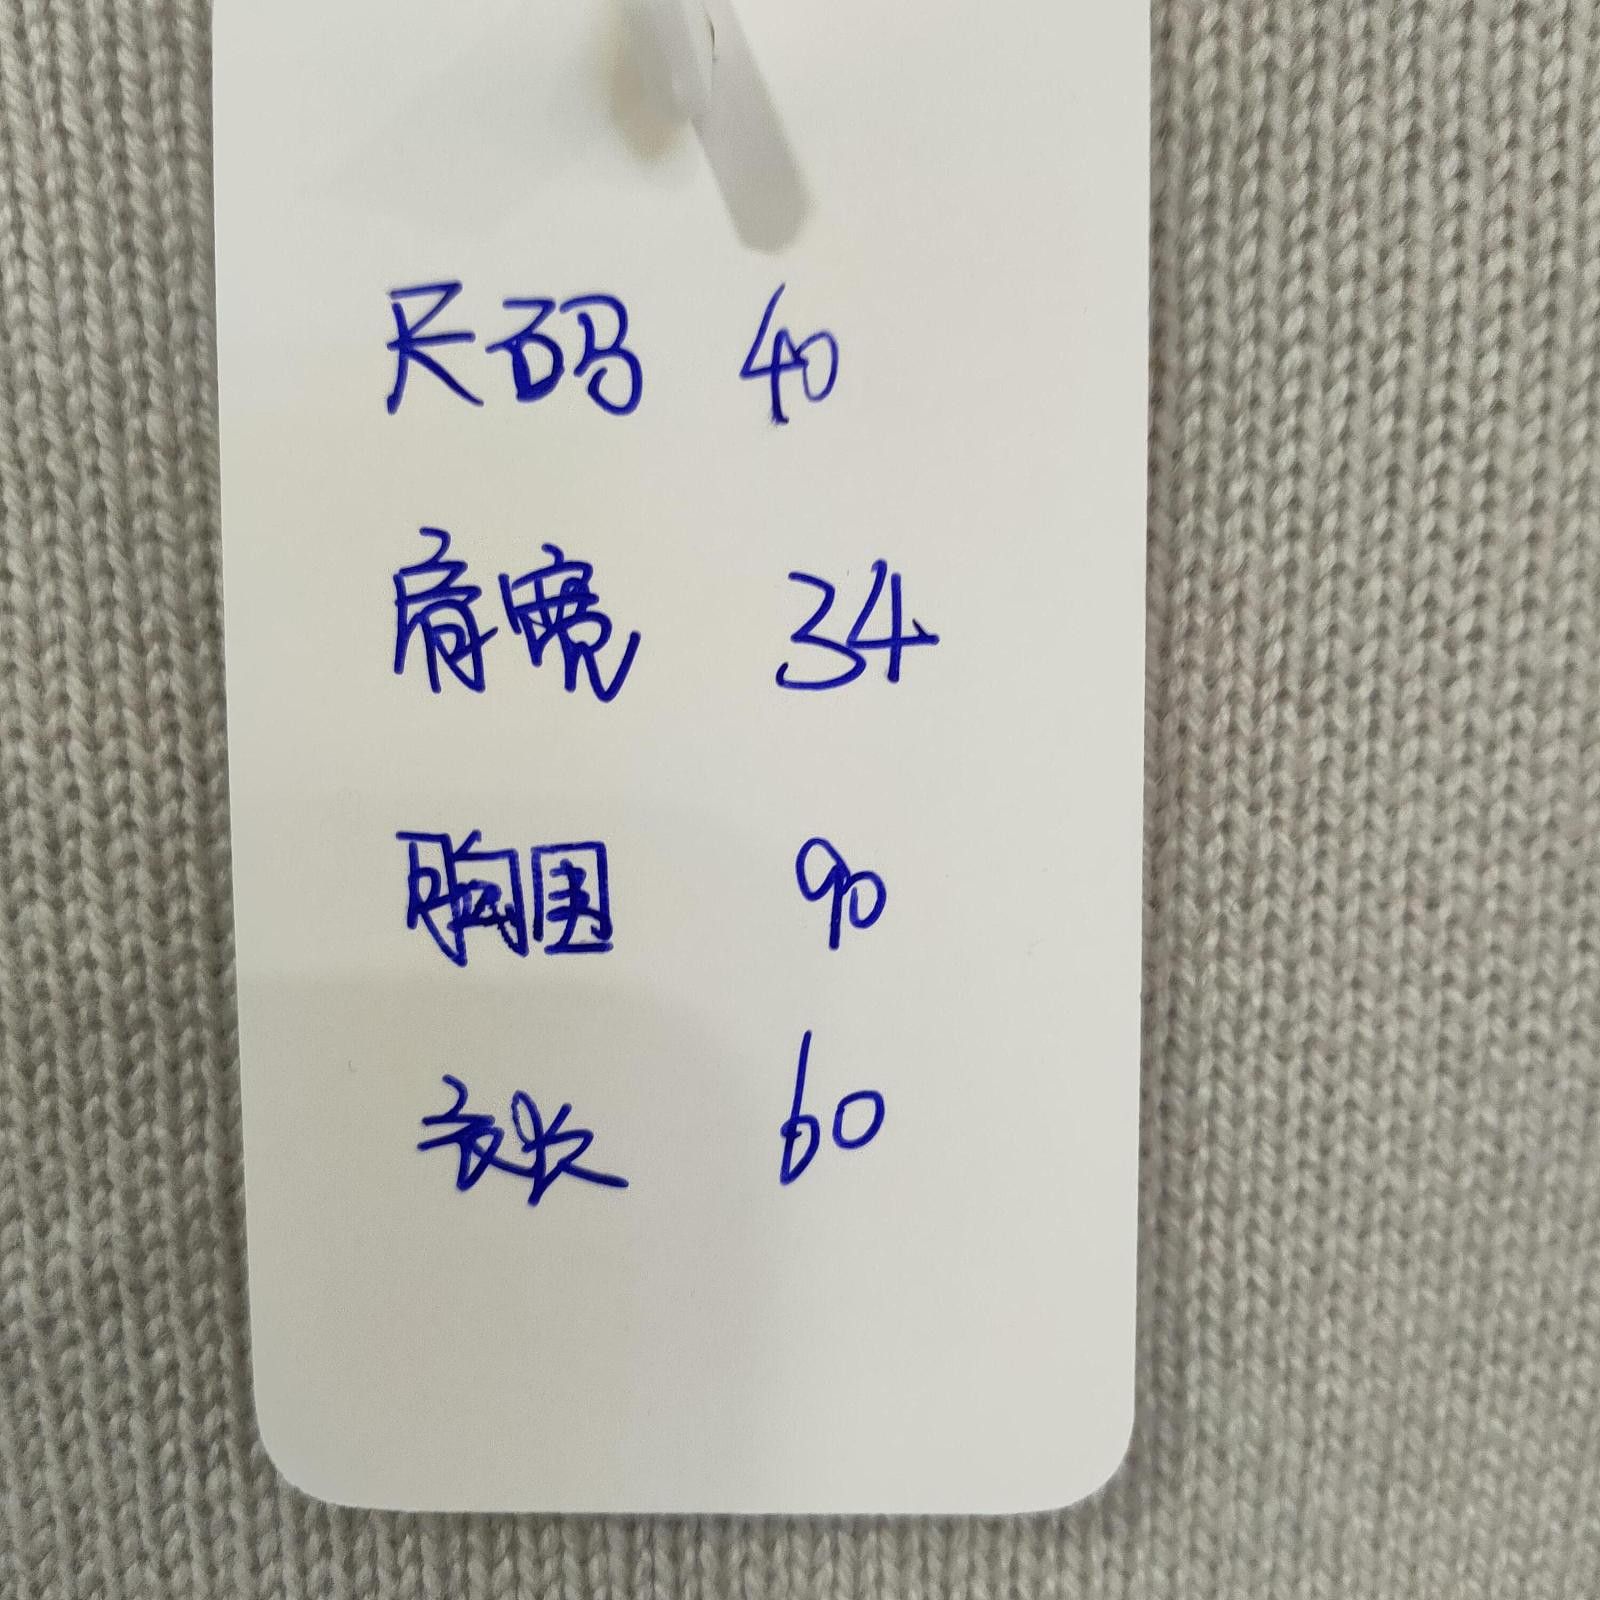 尺码 40
肩宽 34
胸围 90
衣长 60